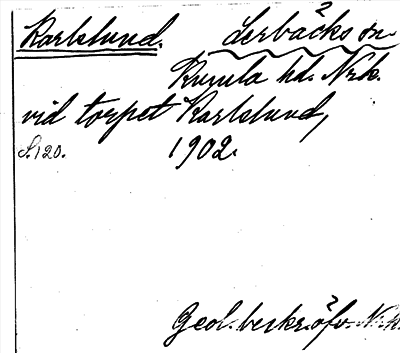 Karlslund. Lerbäcks sn
Kumla hd. Nrk.
vid torpet Karlslund,
S.120. 1902.
Geol. beskr. öfv. Nrk.